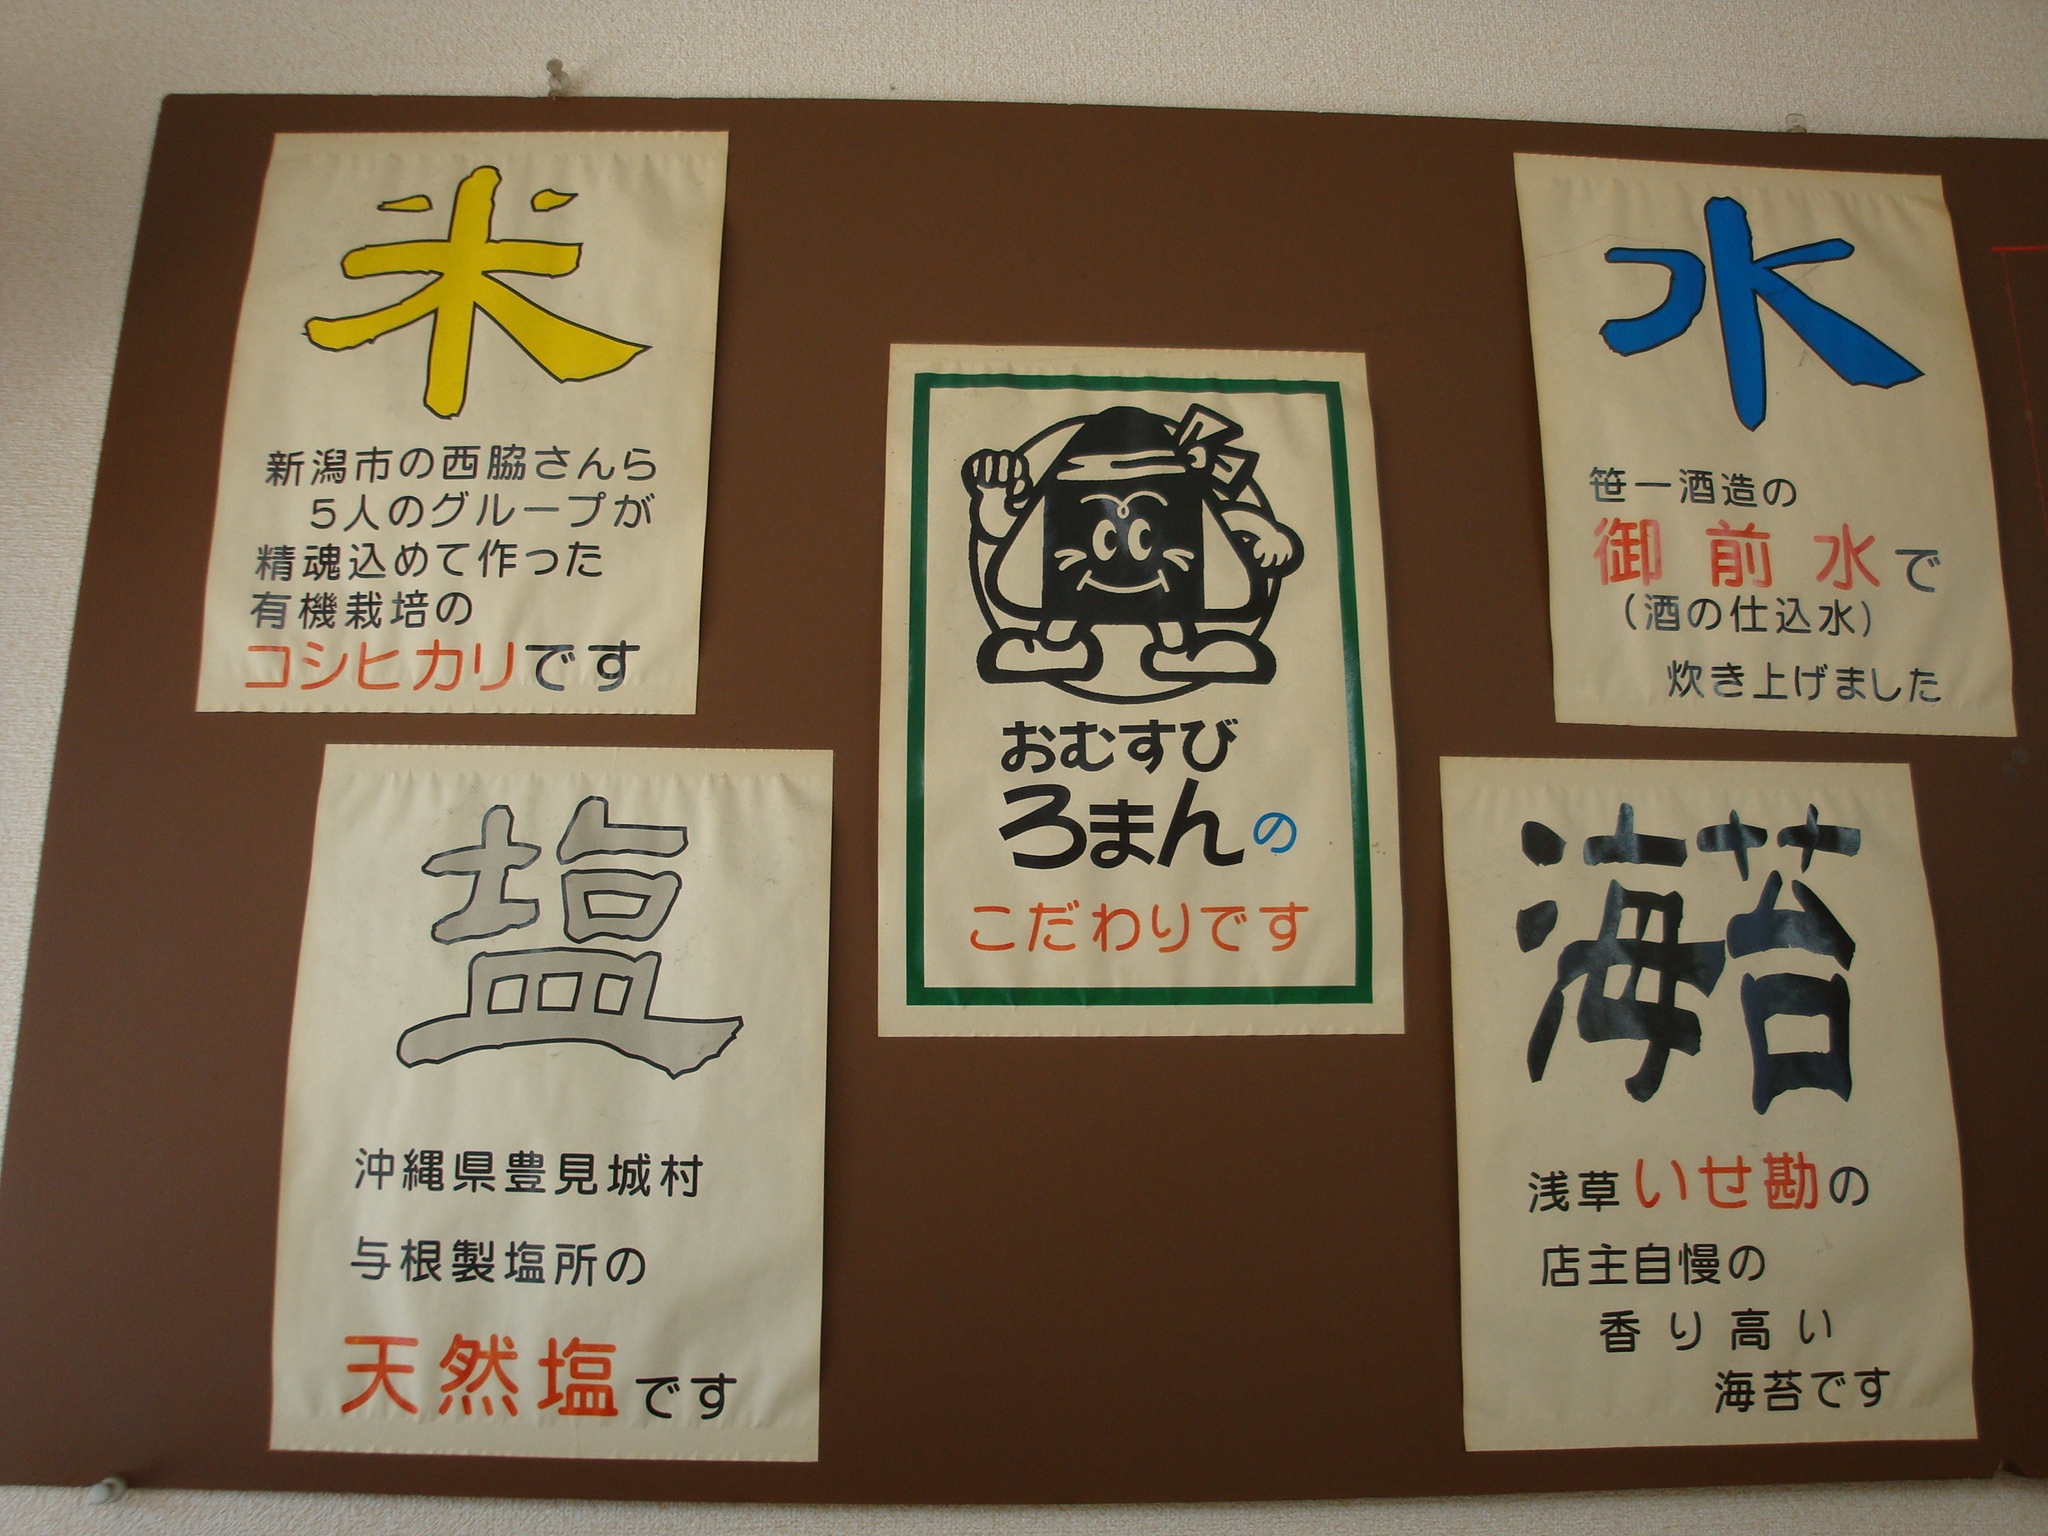 米
新潟市の西脇さんら
5人のグループが
精魂込めて作った
有機栽培の
コシヒカリです
塩
沖縄県豊見城村
与根製塩所の
天然塩です
おむすび
ろまんの
こだわりです
水
笹一酒造の
御前水で
(酒の仕込水)
炊き上げました
海苔
浅草いせ勘の
店主自慢の
香り高い
海苔です